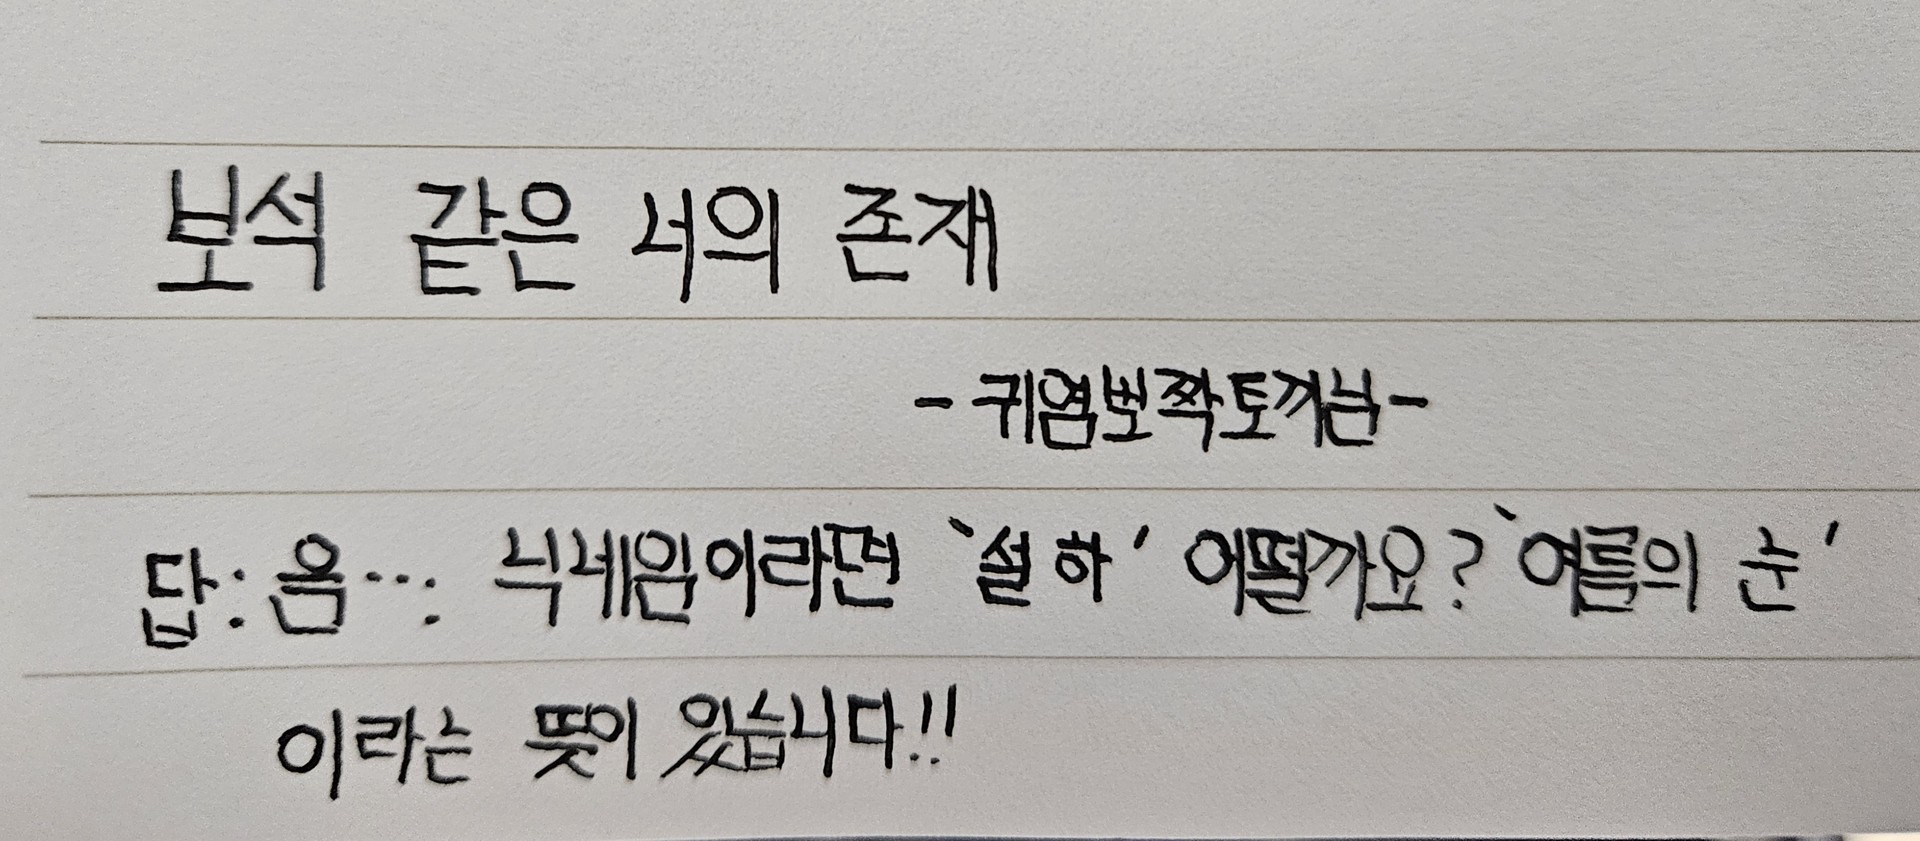 보석 같은 너의 존재
- 귀염뽀짝토끼님 -
답 : 음… : 닉네임이라면 '설하' 어떨까요? '여름의 눈'
이라는 뜻이 있습니다!!